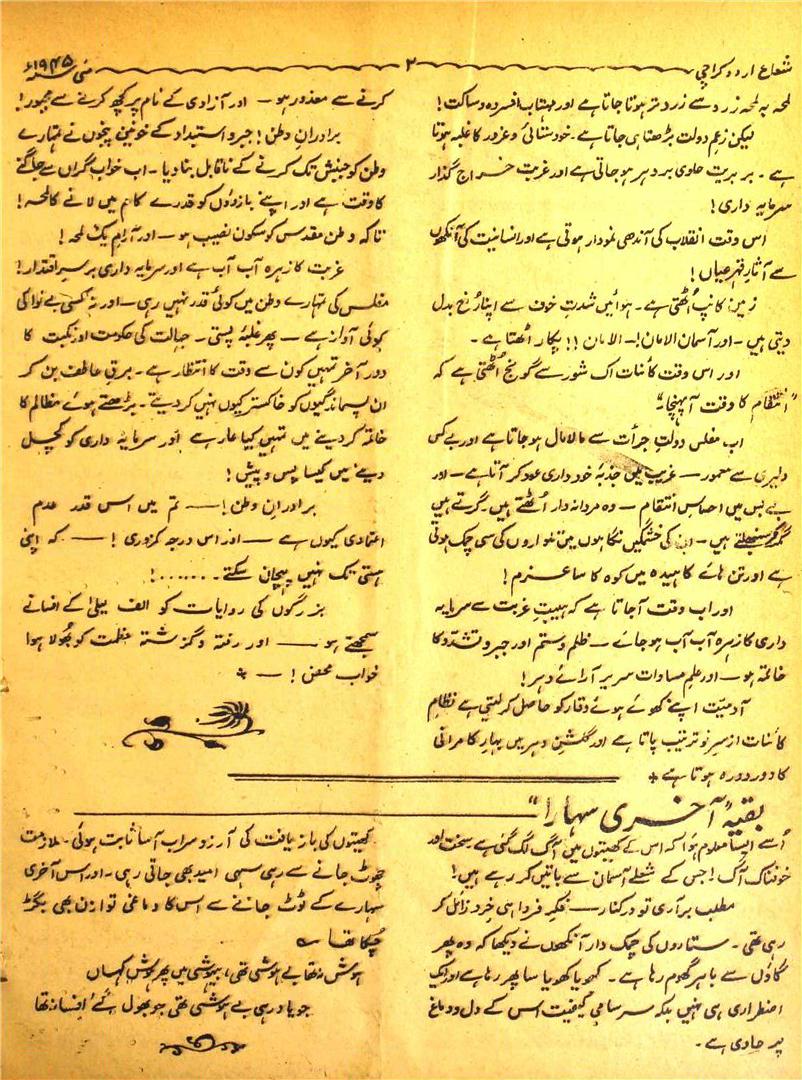 شعاع اردو کراچی
۲
مئی سنہ ۱۹۴۵ء
لمحہ بہ لمحہ زرد سے زرد تر ہوتا جاتا ہے اور مہتاب افسردہ و ساکت!
لیکن زعم دولت بڑھتا ہی جاتا ہے۔ خودستائی و غرور کا غلبہ ہوتا
ہے۔ بربریت حاوی بر دہر ہو جاتی ہے اور غربت خراج گذار
سرمایہ داری!
اس وقت انقلاب کی آندھی نمودار ہوتی ہے اور انسانیت کی آنکھوں
سے آثارِ قہر عیاں!
زمین کانپ اُٹھتی ہے۔ ہوائیں شدتِ خوف سے اپنا رُخ بدل
دیتی ہیں۔ اور آسمان الامان!۔ الامان!! پکار اٹھتا ہے۔
اور اس وقت کائنات اک شور سے گونج اُٹھتی ہے کہ
"انتقام کا وقت آ پہنچا"۔
اب مفلس دولتِ جرأت سے مالا مال ہو جاتا ہے اور بے کس
دلیری سے معمور — غریب میں جذبۂ خود داری عود کر آتا ہے — اور
بے بس میں احساسِ انتقام — وہ مردانہ دار اُٹھتے ہیں۔ گرتے ہیں
مگر پھر سنبھلتے ہیں۔ ان کی خشمگیں نگاہوں میں تلواروں کی سی چمک ہوتی
ہے اور تن ہائے کاہیدہ میں کوہ کا سا عزم!
اور اب وقت آجاتا ہے کہ ہیبتِ غربت سے سرمایہ
داری کا زہرہ آب آب ہو جائے — ظلم و ستم اور جبر و تشدّد کا
خاتمہ ہو — اور علمِ مساوات سریر آرائے دہر!
آدمیّت اپنے کھوئے ہوئے وقار کو حاصل کر لیتی ہے نظامِ
کائنات از سرِ نو ترتیب پاتا ہے اور گلشنِ دہر میں بہارِ کامرانی
کا دور دورہ ہوتا ہے +
کرنے سے معذور ہو — اور آزادی کے نام پر کچھ کرنے سے مجبور!
برادرانِ وطن! جبر و استبداد کے خونیں پنجوں نے تمہارے
وطن کو جنبش تک کرنے کے ناقابل بنا دیا۔ اب خواب گراں سے جاگنے
کا وقت ہے اور اپنے بازوؤں کو قدرے کام میں لانے کا لمحہ!
تاکہ وطن مقدس کو سکون نصیب ہو — اور آرام یک لمحہ!
غربت کا زہرہ آب آب ہے اور سرمایہ داری برسرِ اقتدار!
مفلس کی تمہارے وطن میں کوئی قدر نہیں رہی — اور نہ کسی بے نوا کی
کوئی آواز ہے — پھر غلبۂ پستی۔ جہالت کی حکومت اور نکبت کا
دور آخر تمہیں کون سے وقت کا انتظار ہے۔ برقِ عاطف بن کر
ان پسماندگیوں کو خاکستر کیوں نہیں کر دیتے۔ بڑھتے ہوئے مظالم کا
خاتمہ کر دینے میں تمہیں کیا عار ہے اور سرمایہ داری کو کچل
دینے میں کیسا پس و پیش!
برادرانِ وطن! — تم میں اس قدر عدم
اعتمادی کیوں ہے — اور اس درجہ کمزوری! — کہ اپنی
ہستی تک نہیں پہچان سکتے۔۔۔۔۔۔!
بزرگوں کی روایات کو الف لیلیٰ کے افسانے
سمجھتے ہو — اور رفتہ و گزشتہ عظمت کو بھولا ہوا
خواب محض! — +
بقیہ "آخری سہارا"
اُسے ایسا معلوم ہوا کہ اس کے کھیتوں میں آگ لگ گئی ہے سخت اور
خوفناک آگ! جس کے شعلے آسمان سے باتیں کر رہے ہیں!
مطلب برآری تو درکنار — فکرِ فردا ہی خرد زائل کر
رہی تھی۔ ستاروں کی چمک دار آنکھوں نے دیکھا کہ وہ پھر
گاؤں سے باہر گھوم رہا ہے۔ کھویا کھویا سا پھر رہا ہے اور ایک
اضطراری ہی نہیں بلکہ سرسامی کیفیت اس کے دل و دماغ
پر حاوی ہے۔
کھیتوں کی بازیافت کی آرزو سراب آسا ثابت ہوئی۔ ملازمت
چھوٹ جانے سے رہی سہی امید بھی جاتی رہی۔ اور اس آخری
سہارے کے ٹوٹ جانے سے اس کا دماغی توازن بھی بگڑ
چکا تھا ؎
ہوش نہ تھا بے ہوشی تھی، بیہوشی میں پھر ہوش کہاں
جو یاد رہی بے ہوشی تھی جو بھول گئے افسانہ تھا